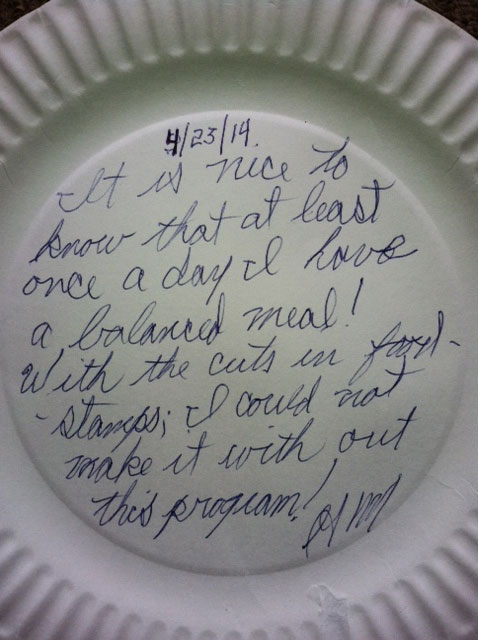 4/23/14.
It is nice to
know that at least
once a day I have
a balanced meal!
With the cuts in food-
-stamps; I could not
make it with out
this program!